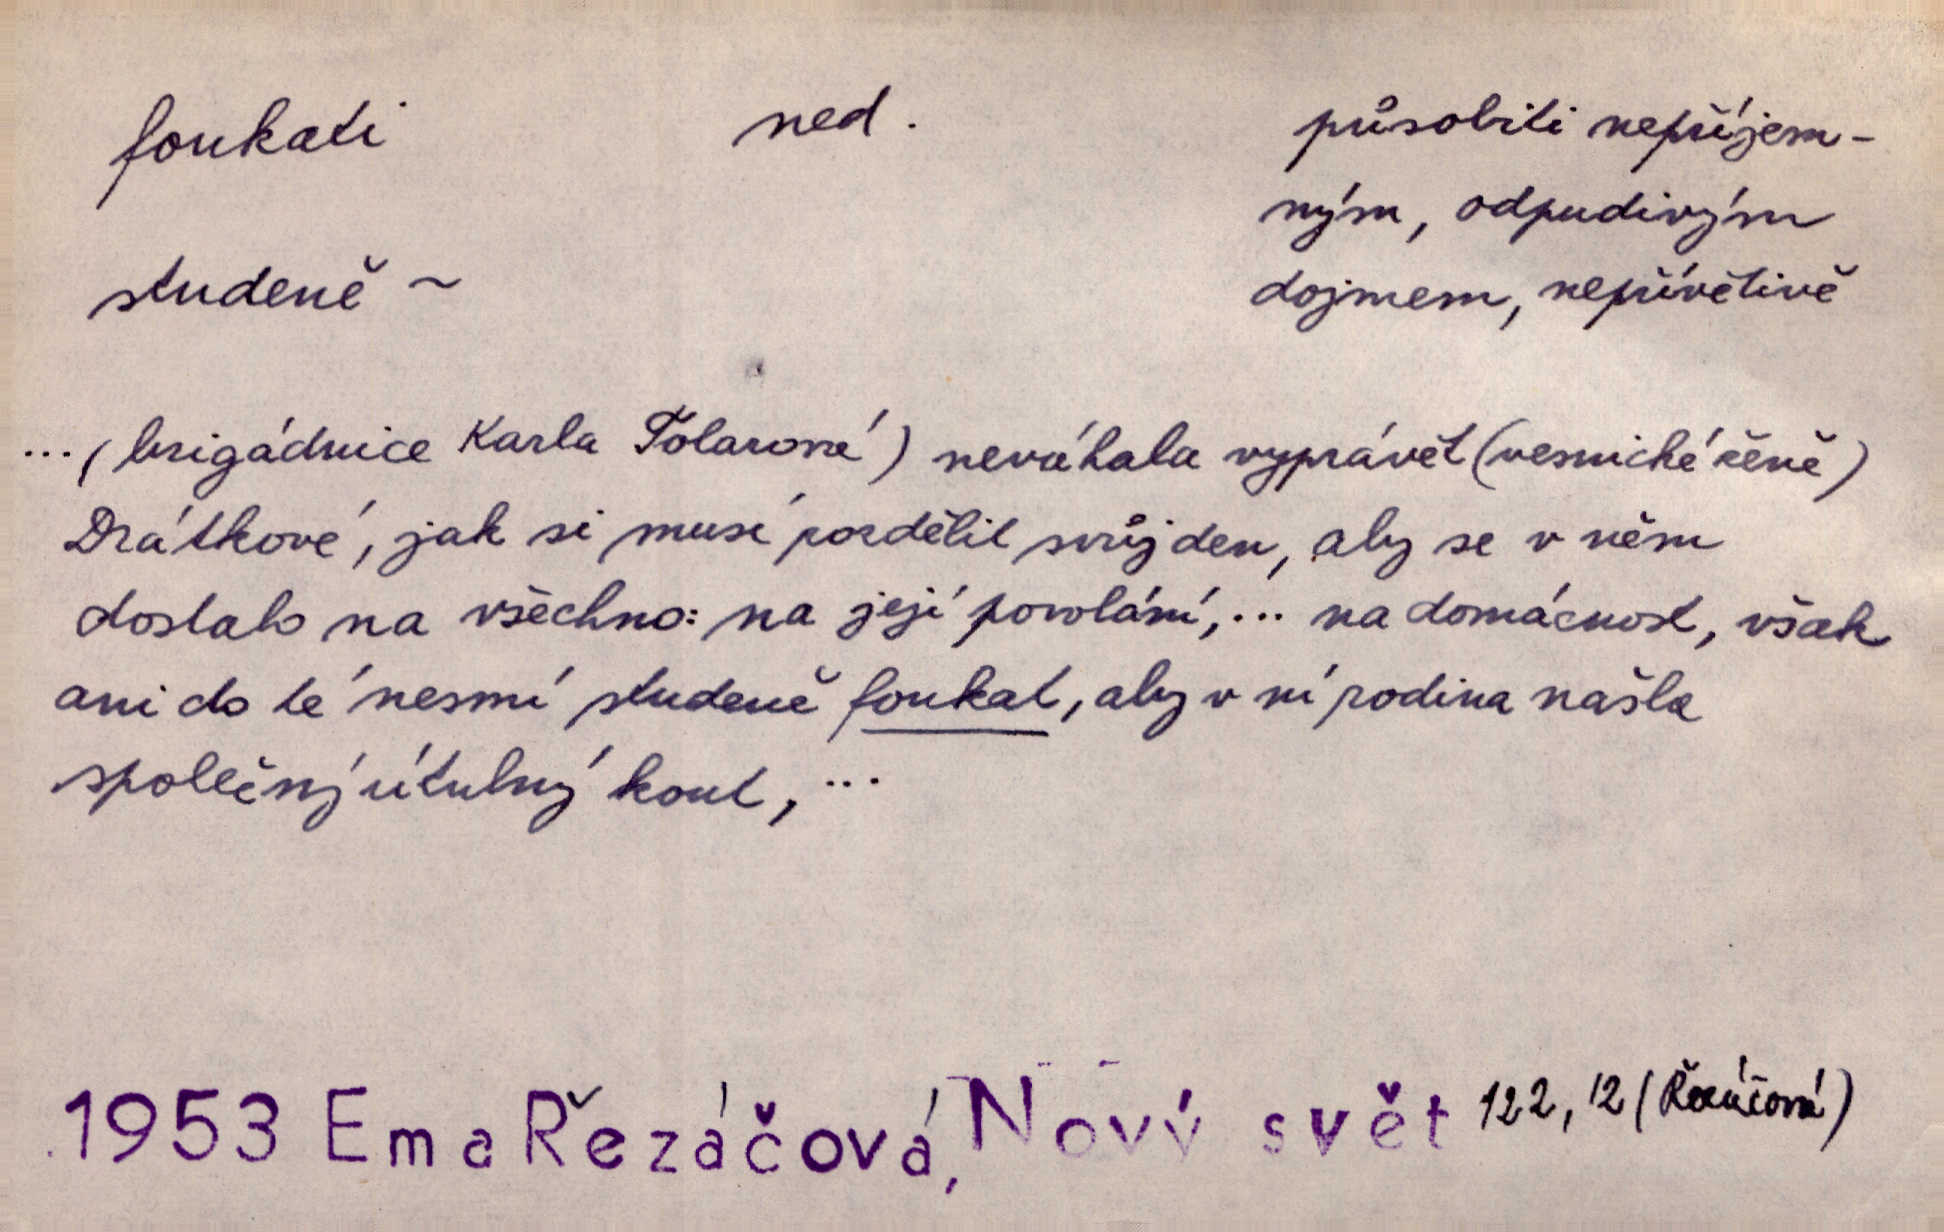 foukati ned. působiti nepříjem-
ným, odpudivým
studeně ~ dojmem, nepřívětivě
... (brigádnice Karla Tolarová) neváhala vyprávět (vesnické ženě)
Drátkové, jak si musí pozdělit svůj den, aby se v něm
dostalo na všechno: na její povolání, ... na domácnost, však
ani do té nesmí studeně foukat, aby v ní rodina našla
společný útulný kout, ...
1953 Ema Řezáčová, Nový svět 122, 12 (Řezáčová)